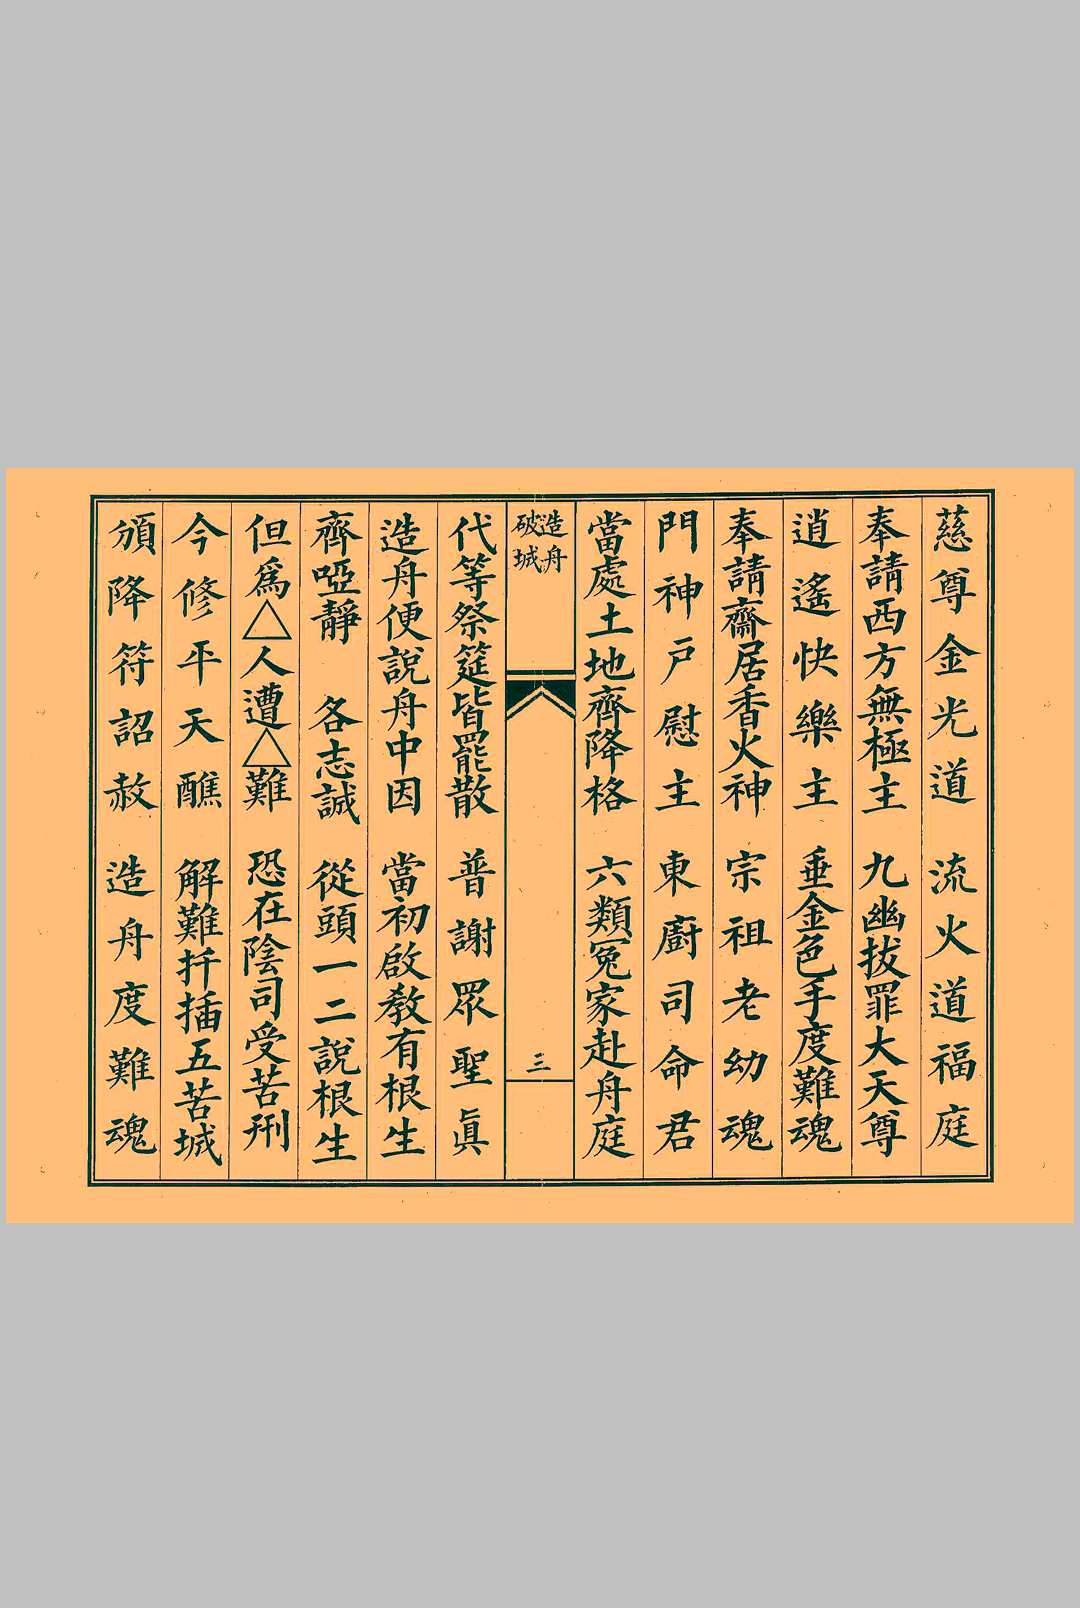 慈尊金光道 流火道福庭
奉請西方無極主 九幽拔罪大天尊
逍遙快樂主 垂金色手度難魂
奉請齋居香火神 宗祖老幼魂
門神戶慰主 東廚司命君
當處土地齊降格 六類冤家赴舟庭
造舟破城 三
代等祭筵皆罷散 普謝眾聖真
造舟便說舟中因 當初啟教有根生
齊啞靜 各志誠 從頭一二說根生
但為△人遭△難 恐在陰司受苦刑
今修平天醮 解難扦插五苦城
頒降符詔赦 造舟度難魂